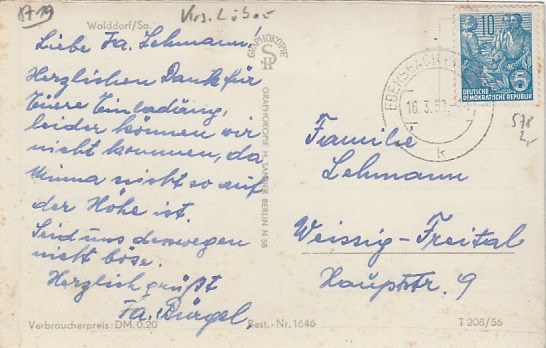 8719
Krs. Löbau
Walddorf/Sa.
Liebe Fa. Lehmann!
Herzlichen Dank für
Eiere Einladung,
leider können wir
nicht kommen, da
Minna nicht so auf
der Höhe ist.
Seid uns deswegen
nicht böse.
Herzlich grüßt
Fa. Bürgel,
Verbraucherpreis: DM. 0.20
Best.-Nr. 1646
T 208/56
GRAPHOKOPIE
GRAPHOKOPIE H. SANDER BERLIN N 58
10
5
DEUTSCHE
DEMOKRATISCHE REPUBLIK
EBERSBACH
16.3.
k
578
Familie
Lehmann
Weissig-Freital
Hauptstr. 9